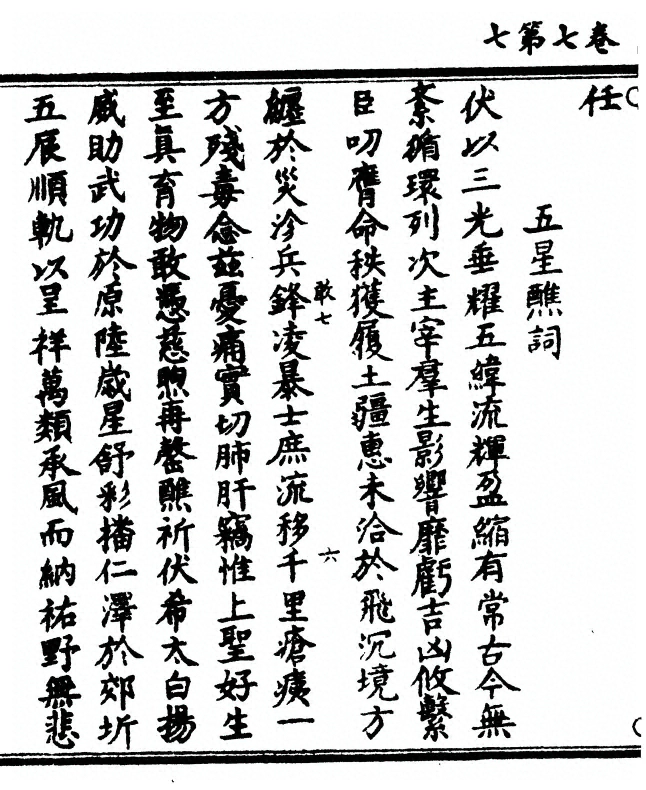 七第七卷
任
五星醮詞
伏以三光垂耀五緯流輝盈縮有常古今無
紊循環列次主宰羣生影響靡虧吉凶攸繫
臣叨膺命秩獲履土疆惠未洽於飛沉境方
纏於災沴兵鋒凌暴士庶流移千里瘡痍一
敢七
六
方殘毒念茲憂痛實切肺肝竊惟上聖好生
至真育物敢憑慈煦再罄醮祈伏希太白揚
威助武功於原陸歲星舒彩播仁澤於郊圻
五辰順軌以呈祥萬類承風而納祐野無悲